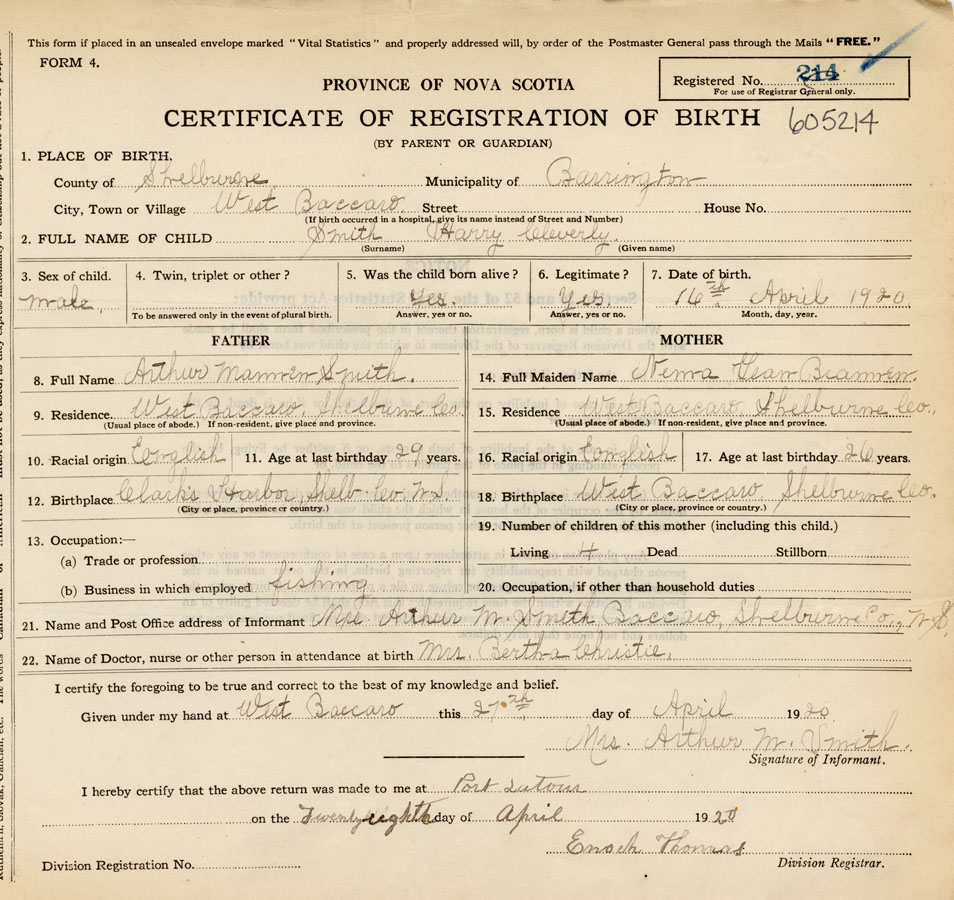 This form if placed in an unsealed envelope marked "Vital Statistics" and properly addressed will, by order of the Postmaster General pass through the Mails "FREE."
FORM 4.
Registered No. 214
For use of Registrar General only.
PROVINCE OF NOVA SCOTIA
CERTIFICATE OF REGISTRATION OF BIRTH 605214
(BY PARENT OR GUARDIAN)
1. PLACE OF BIRTH.
County of Shelburne Municipality of Barrington
City, Town or Village West Baccaro Street House No.
(If birth occurred in a hospital, give its name instead of Street and Number)
2. FULL NAME OF CHILD Smith Harry Cleverly.
(Surname) (Given name)
3. Sex of child. 4. Twin, triplet or other? 5. Was the child born alive? 6. Legitimate? 7. Date of birth.
male. Yes. Yes. 16th April 1920.
To be answered only in the event of plural birth. Answer, yes or no. Answer, yes or no. Month, day, year.
FATHER MOTHER
8. Full Name Arthur Smith. 14. Full Maiden Name
9. Residence. West Baccaro. Shelburne Co. 15. Residence West Baccaro, Shelburne Co.,
(Usual place of abode.) If non-resident, give place and province. (Usual place of abode.) If non-resident, give place and province.
10. Racial origin English 11. Age at last birthday 29 years. 16. Racial origin English 17. Age at last birthday 26 years.
12. Birthplace Clark's Harbor, Shelb. Co. N.S. 18. Birthplace West Baccaro Shelburne Co.
(City or place, province or country.) (City or place, province or country.)
19. Number of children of this mother (including this child.)
13. Occupation:—
Living 4 Dead Stillborn
(a) Trade or profession
(b) Business in which employed fishing 20. Occupation, if other than household duties
21. Name and Post Office address of Informant Mrs. Arthur M. Smith Baccaro, Shelburne Co., N.S.
22. Name of Doctor, nurse or other person in attendance at birth Mrs. Bertha Christie.
I certify the foregoing to be true and correct to the best of my knowledge and belief.
Given under my hand at West Baccaro this 27th day of April 1920
Mrs. Arthur M. Smith.
Signature of Informant.
I hereby certify that the above return was made to me at Port
on the Twenty eighth day of April 1920
Enoch Thomas
Division Registration No. Division Registrar.